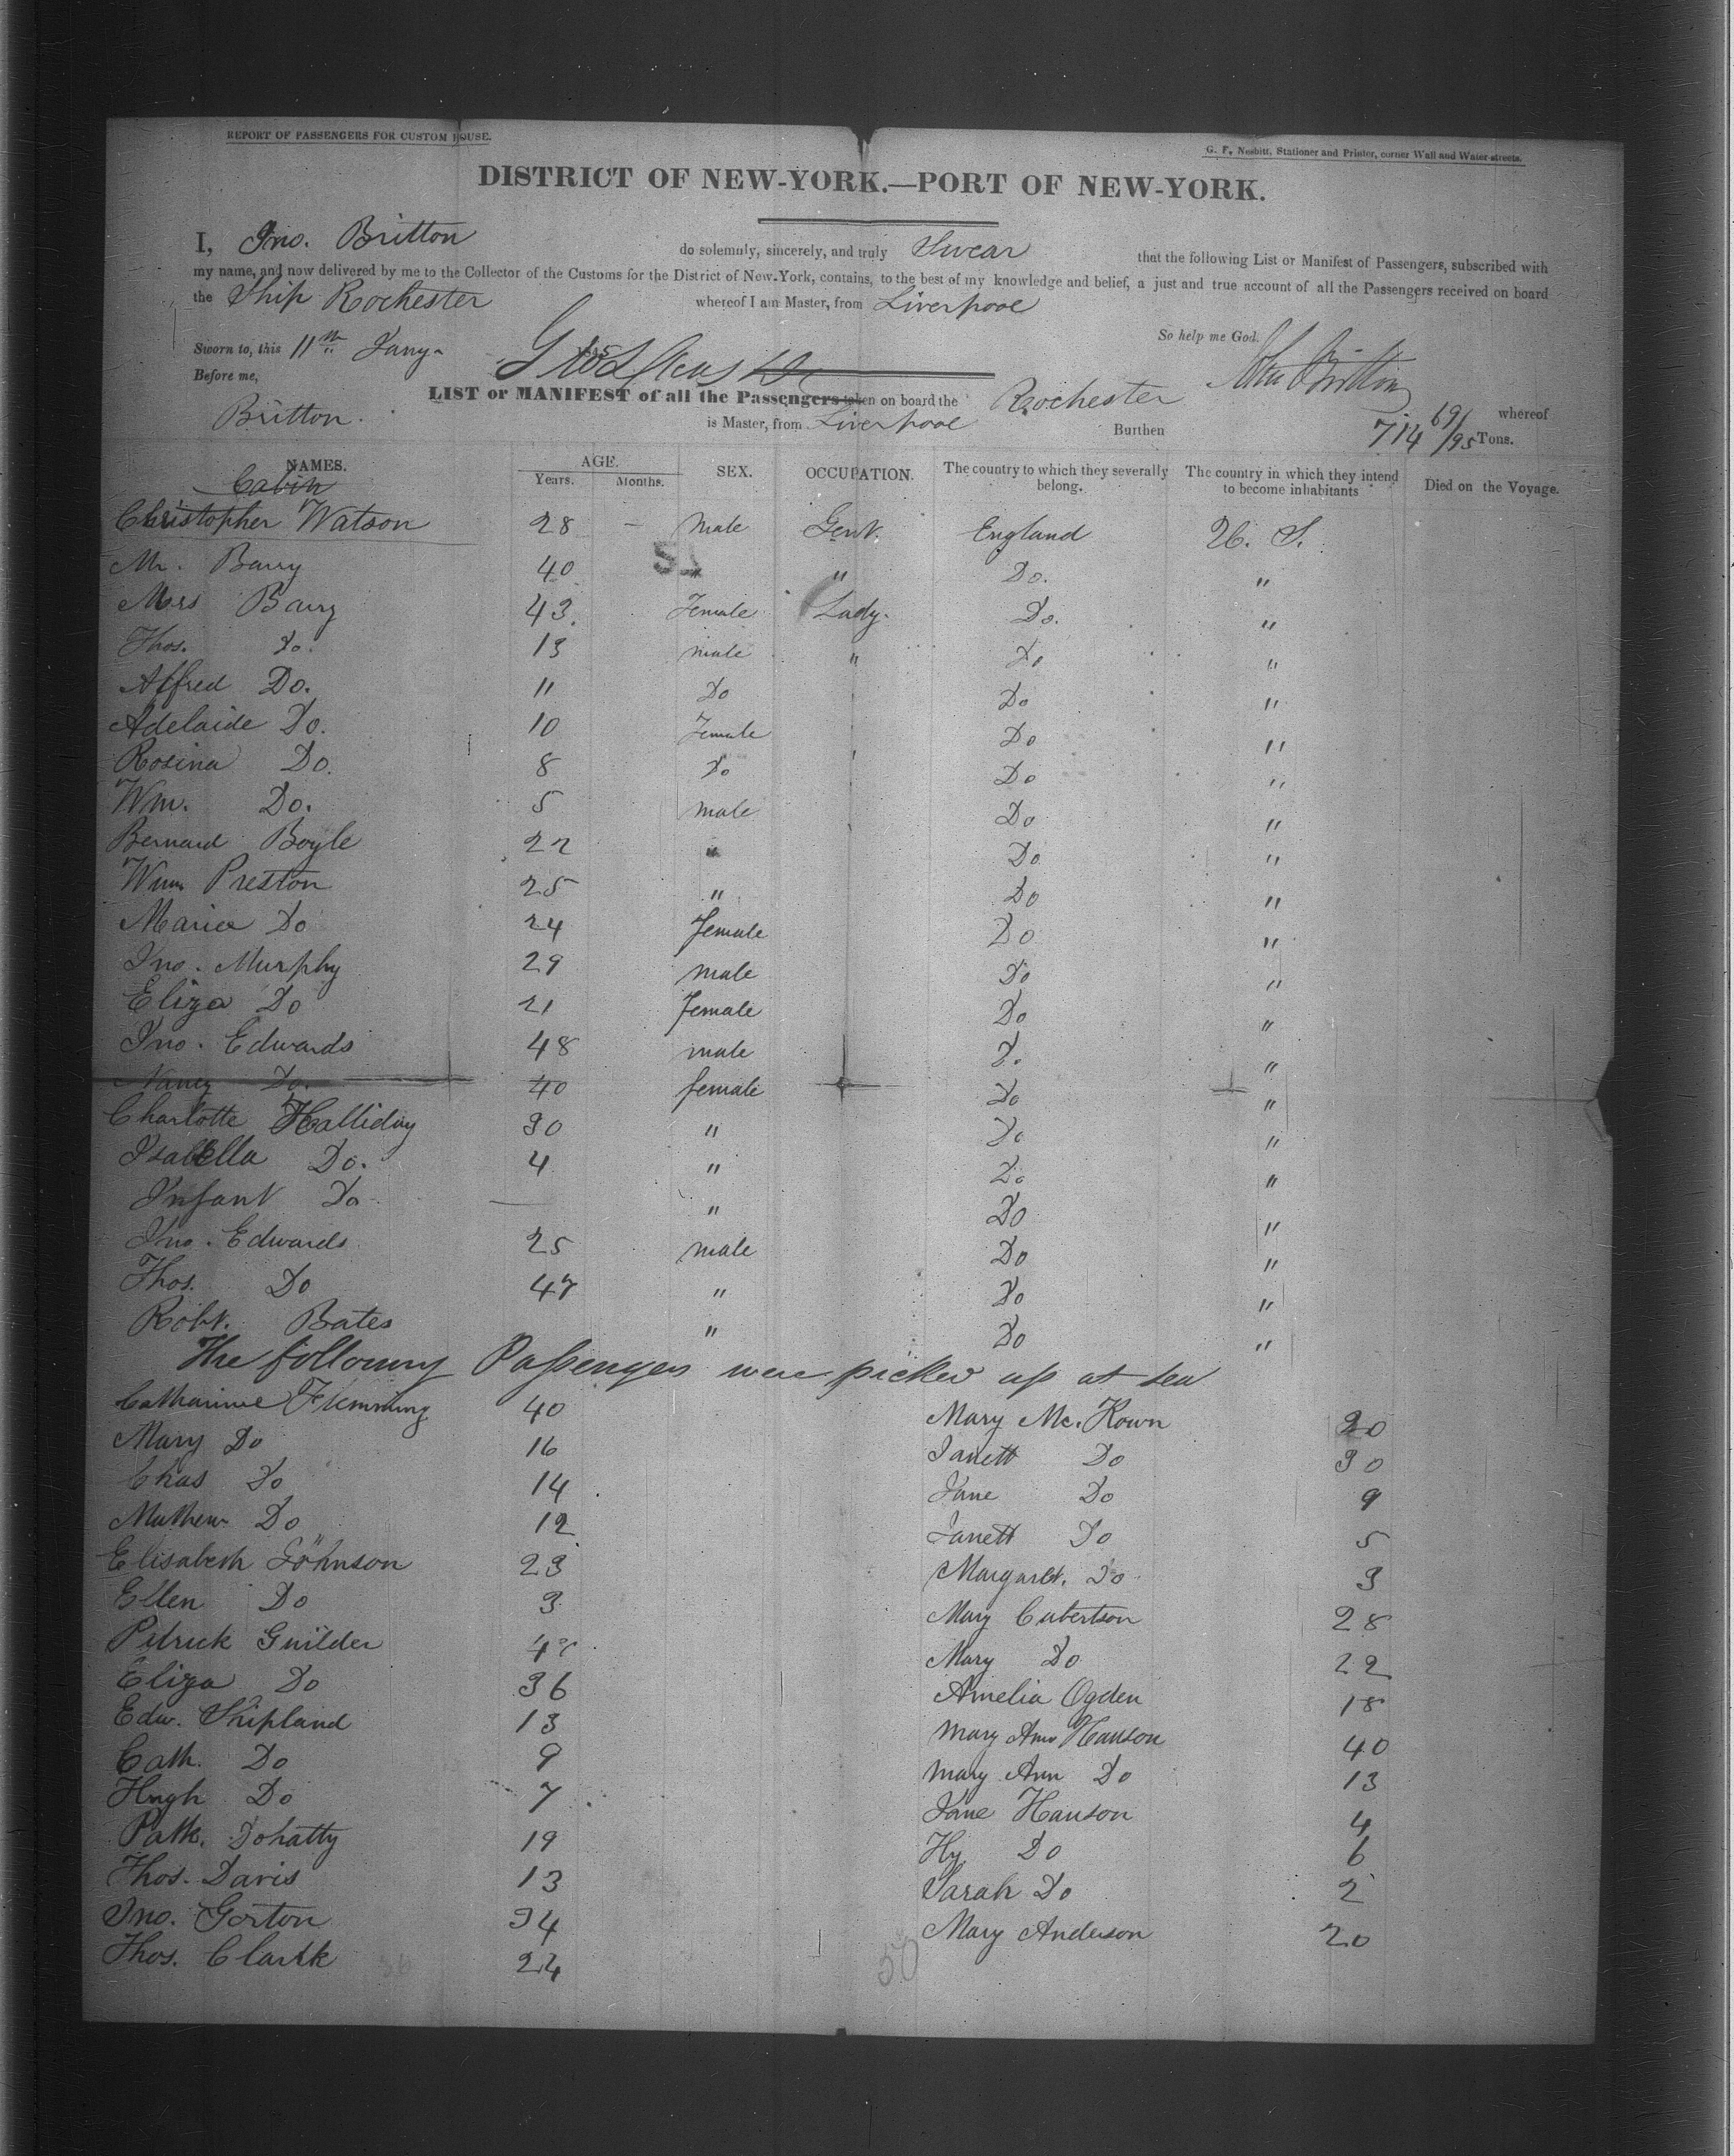 REPORT OF PASSENGERS FOR CUSTOM HOUSE.
G. F. Nesbitt, Stationer and Printer, corner Wall and Water-streets.
DISTRICT OF NEW-YORK.—PORT OF NEW-YORK.
I, Jno. Britton do solemnly, sincerely, and truly Swear that the following List or Manifest of Passengers, subscribed with
my name, and now delivered by me to the Collector of the Customs for the District of New-York, contains, to the best of my knowledge and belief, a just and true account of all the Passengers received on board
the Ship Rochester whereof I am Master, from Liverpool
So help me God.
Sworn to, this 11th Jany- John Britton
Before me,
LIST or MANIFEST of all the Passengers taken on board the Rochester whereof
Britton. is Master, from Liverpool Burthen 714 69/95 Tons.
NAMES. AGE. SEX. OCCUPATION. The country to which they severally belong. The country in which they intend to become inhabitants Died on the Voyage.
Years. Months.
Cabin
Christopher Watson 28 — Male Gent. England U. S.
Mr. Barry 40 " Do. "
Mrs Barry 43. Female Lady. Do. "
Thos. Do. 13 male " Do "
Alfred Do. 11 Do Do "
Adelaide Do. 10 Female Do "
Rosina Do. 8 Do Do "
Wm. Do. 5 male Do "
Bernard Boyle 22 " Do "
Wm Preston 25 " Do "
Maria Do 24 female Do "
Jno. Murphy 29 male Do "
Eliza Do 21 female Do "
Jno. Edwards 48 male Do "
Nancy Do. 40 female Do "
Charlotte Halliday 30 " Do "
Isabella Do. 4 " Do "
Infant Do — " Do "
Jno. Edwards 25 male Do "
Thos. Do 47 " Do "
Robt. Bates " Do "
The following Passengers were picked up at sea
Catharine Flemming 40 Mary Mc. Kown 20
Mary Do 16 Janett Do 30
Chas Do 14 Jane Do 9
Mathew Do 12 Janett Do 5
Elisabeth Johnson 23 Margaret. Do 3
Ellen Do 3 Mary Cubertson 28
Patrick Guilder Mary Do 22
Eliza Do 36 Amelia Ogden 18
Edw. Shipland 13 Mary Ann Hanson 40
Cath. Do 9 Mary Ann Do 13
Hugh Do 7 Jane Hanson 4
Patk. Dohatty 19 Hy. Do 6
Thos. Davis 13 Sarah Do 2
Jno. Gorton 34 Mary Anderson 20
Thos. Clartk 24
50